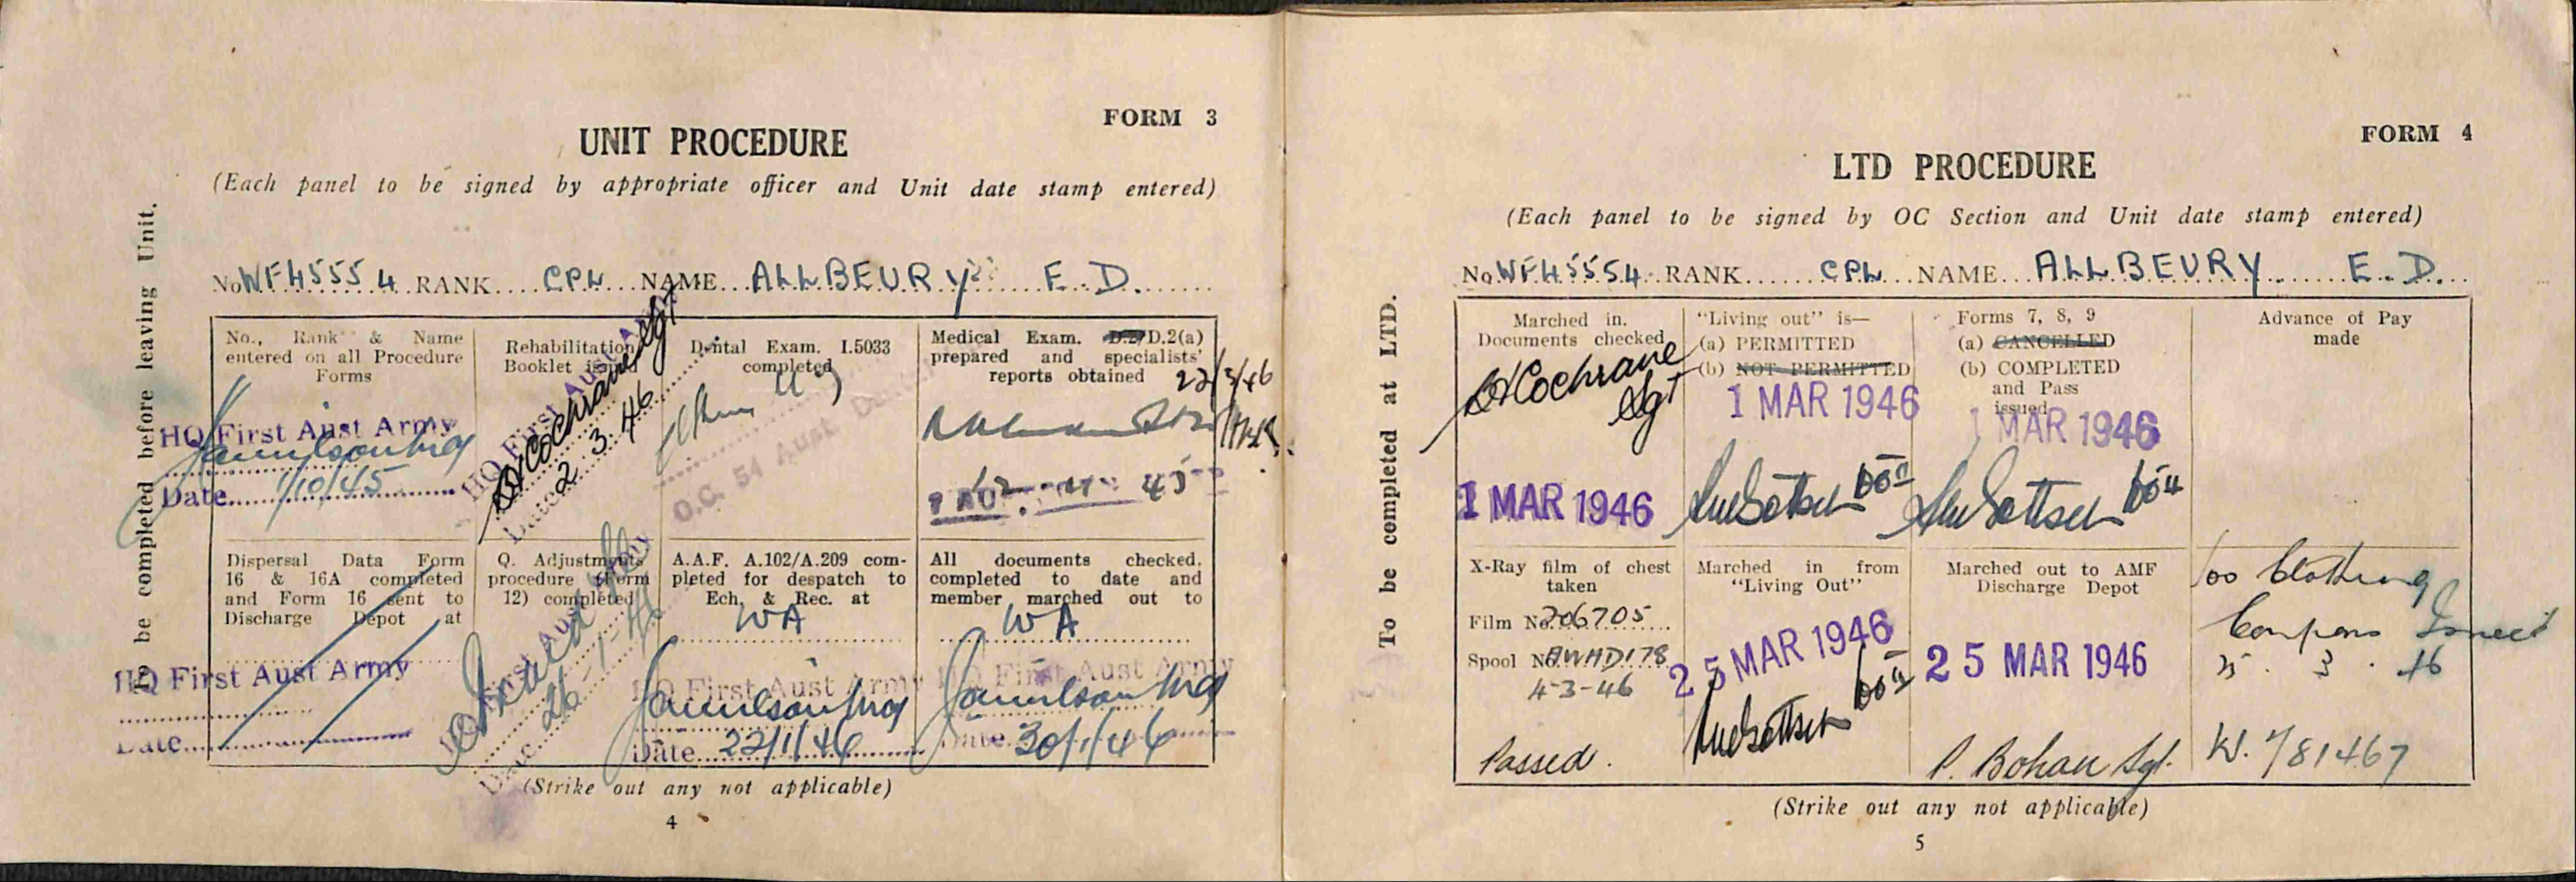 FORM 3
UNIT PROCEDURE
(Each panel to be signed by appropriate officer and Unit date stamp entered)
To be completed before leaving Unit.
No WF45554 RANK CPL NAME ALLBEURY E. D.
No., Rank & Name
entered on all Procedure
Forms
HQ First Aust Army
Date 1/10/45
Rehabilitation
Booklet issued
HQ First Aust Army
Cochrane Sgt
Date 2.3.46
Dental Exam. I.5033
completed
O.C. 54 Aust Dental
Medical Exam. D.2/D.2(a)
prepared and specialists'
reports obtained
22/3/46
Dispersal Data Form
16 & 16A completed
and Form 16 sent to
Discharge Depot at
HQ First Aust Army
Date
Q. Adjustments
procedure (Form
12) completed
First Aust Army
Date 26-1-46
A.A.F. A.102/A.209 com-
pleted for despatch to
Ech. & Rec. at
WA
HQ First Aust Army
Date 22/1/46
All documents checked,
completed to date and
member marched out to
WA
HQ First Aust Army
Date 30/1/46
(Strike out any not applicable)
4
FORM 4
LTD PROCEDURE
(Each panel to be signed by OC Section and Unit date stamp entered)
To be completed at LTD.
No WF45554 RANK CPL NAME ALLBEURY E. D.
Marched in.
Documents checked
Cochrane
Sgt
1 MAR 1946
"Living out" is—
(a) PERMITTED
(b) NOT PERMITTED
1 MAR 1946
Forms 7, 8, 9
(a) CANCELLED
(b) COMPLETED
and Pass
issued
1 MAR 1946
Advance of Pay
made
X-Ray film of chest
taken
Film No 206705
Spool No AWHD178
4-3-46
Passed.
Marched in from
"Living Out"
25 MAR 1946
Marched out to AMF
Discharge Depot
25 MAR 1946
P. Bohan Sgt.
100 Clothing
Coupons Issued
25. 3. 46
W. 781467
(Strike out any not applicable)
5